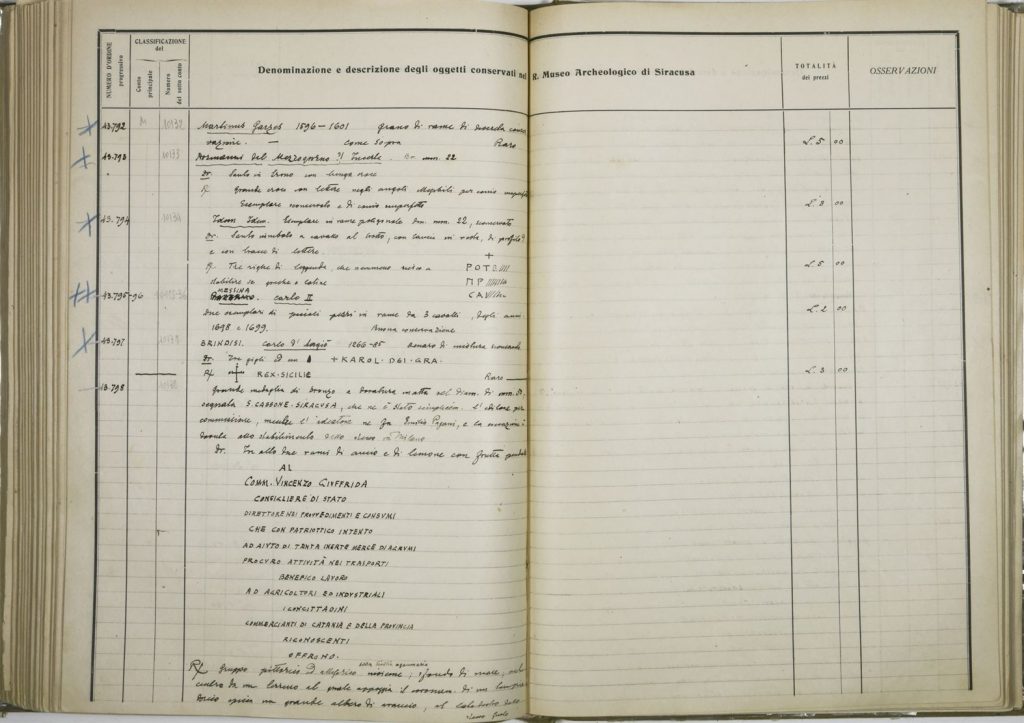 NUMERO D'ORDINE progressivo
CLASSIFICAZIONE
del
Conto principale
Numero del sotto conto
Denominazione e descrizione degli oggetti conservati nel R. Museo Archeologico di Siracusa
TOTALITÀ
dei prezzi
OSSERVAZIONI
43.792 M 10132 Martinus Garzes 1596-1601 grano di rame di discreta conser
vazione. — come sopra Raro L. 5 00
43.793 10133 Normanni del Mezzogiorno Incerte. Br. mm. 22
Dr. Santo in trono con lunga croce
R. Grande croce con lettere negli angoli
Esemplare conservato e di conio imperfetto L. 3 00
43.794 10134 Idem Idem. Esemplare in rame poligonale dm. mm. 22, conservato
Dr. Santo nimbato a cavallo al trotto, con lancia in resta, di profilo
e con tracce di lettere. +
R. Tre righe di leggenda, che nemmeno riesco a POTE L. 5 00
stabilire se greche o latine ΠΡ
43.795-96 MESSINA carlo II CA
Due esemplari di piccoli pezzi in rame da 3 cavalli, degli anni L. 2 00
1698 e 1699. Buona conservazione
43.797 BRINDISI. Carlo d'Angiò 1266-85 denaro di mistura conservato
Dr. Tre gigli ed un + KAROL·DGI·GRA·
R REX·SICILIE Raro L. 3 00
43.798 Grande medaglia di bronzo a doratura matta nel diam. di mm.
segnata S. CASSONE·SIRACUSA, che ne è stato l'editore per
commissione, mentre l'ideatore ne fu Emilio Pagani, e la
dovuta allo stabilimento dello stesso in Milano
Dr. In alto due rami di arancio e di limone con frutta
AL
COMM. VINCENZO GIUFFRIDA
CONSIGLIERE DI STATO
DIRETTORE NEI PROVVEDIMENTI E CONSVMI
CHE CON PATRIOTTICO INTENTO
AD AIVTO DI TANTA INERTE MERCE DI AGRVMI
PROCVRO ATTIVITÀ NEI TRASPORTI
BENEFICO LAVORO
AD AGRICOLTORI ED INDVSTRIALI
I CONCITTADINI
COMMERCIANTI DI CATANIA E DELLA PROVINCIA
RICONOSCENTI
OFFRONO.
R Gruppo pittorico allegorico della Sicilia agrumaria; sfondo di mare, nel
centro da un terreno al quale appoggia il
dorico spicca un grande albero di arancio,